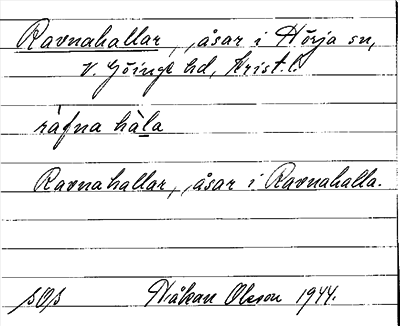 Ravnahallar, åsar i Hörja sn,
V. Göinge hd, Krist. l.
ráfna hàla
Ravnahallar, åsar i Ravnahalla.
sOs Håkan Olsson 1944.